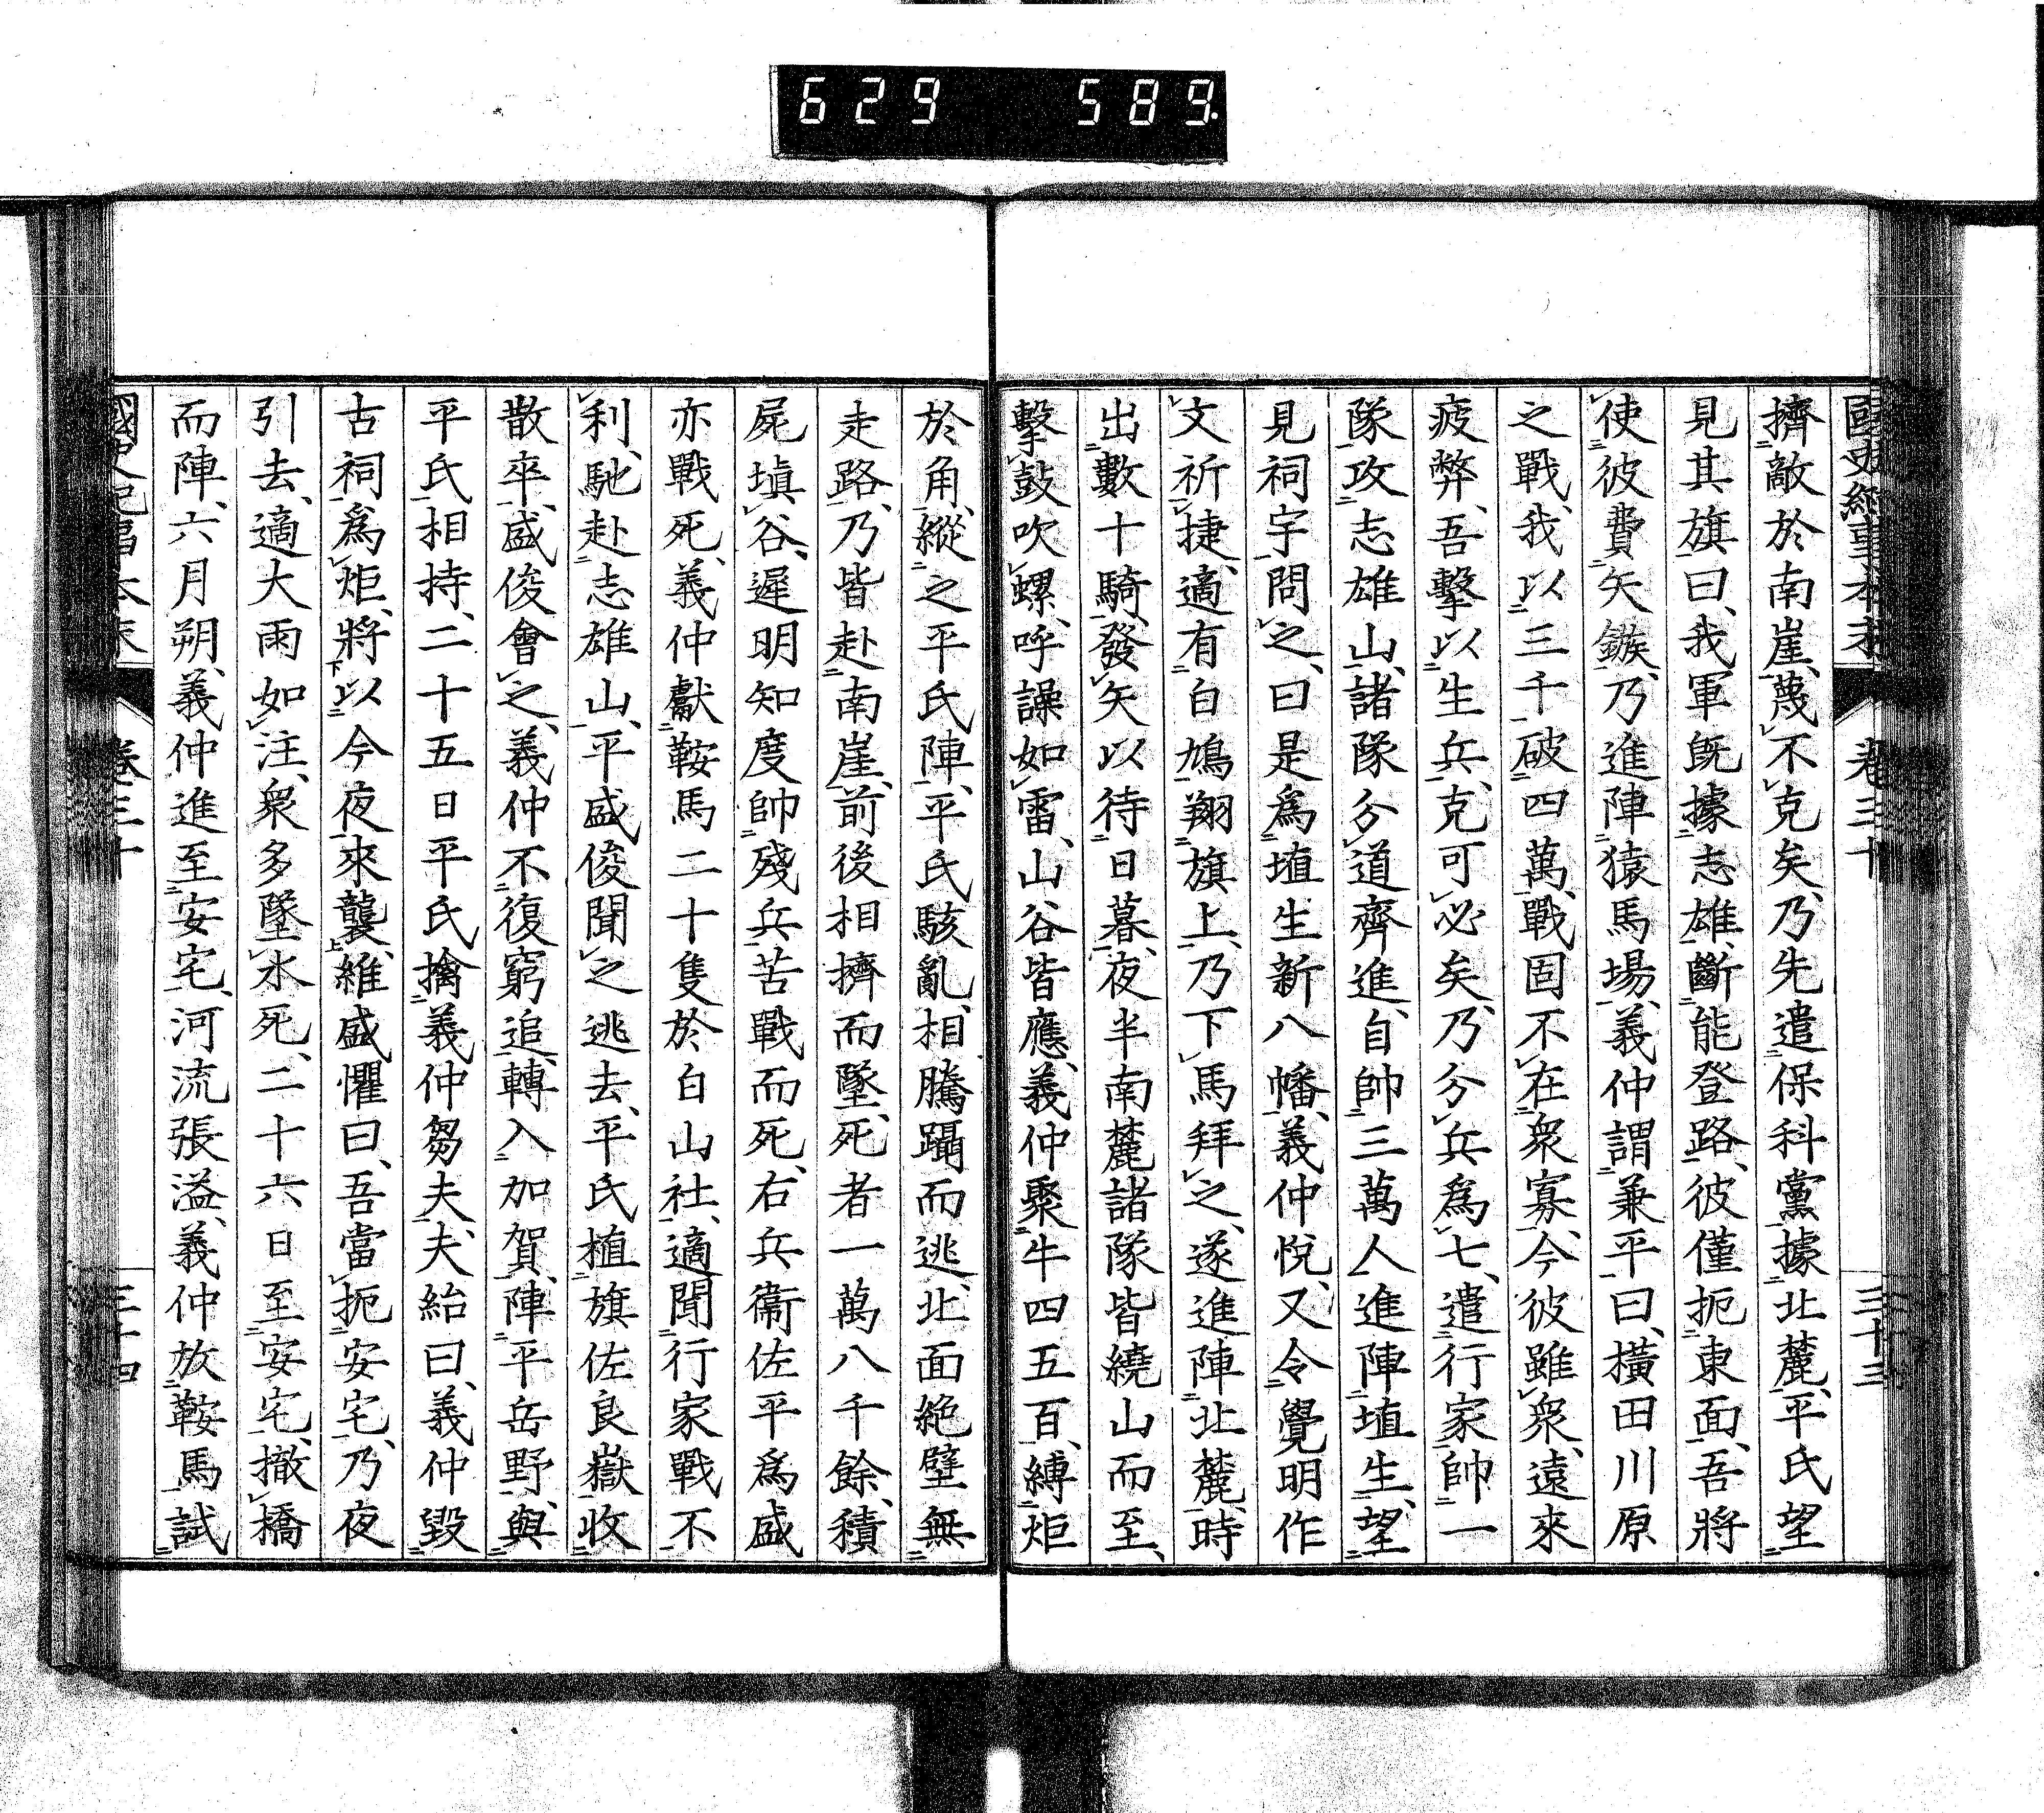 629 589
國史紀事本末 卷三十 三十三
擠敵於南崖、蔑不克矣、乃先遣保科黨據北麓、平氏望
見其旗曰、我軍既據志雄、斷能登路、彼僅扼東面、吾將
使彼費矢鏃、乃進陣猿馬場、義仲謂兼平曰、橫田川原
之戰、我以三千破四萬、戰固不在衆寡、今彼雖衆、遠來
疲弊、吾擊以生兵、克可必矣、乃分兵爲七、遣行家帥一
隊攻志雄山、諸隊分道齊進、自帥三萬人進陣埴生、望
見祠宇問之、曰是爲埴生新八幡、義仲悅、又令覺明作
文祈捷、適有白鳩翔旗上、乃下馬拜之、遂進陣北麓、時
出數十騎、發矢以待日暮、夜半南麓諸隊皆繞山而至、
擊鼓吹螺、呼譟如雷、山谷皆應、義仲聚牛四五百、縛炬
於角、縱之平氏陣、平氏駭亂、相騰躡而逃、北面絶壁無
走路、乃皆赴南崖、前後相擠而墜、死者一萬八千餘、積
屍塡谷、遲明知度帥殘兵苦戰而死、右兵衞佐平爲盛
亦戰死、義仲獻鞍馬二十隻於白山社、適聞行家戰不
利、馳赴志雄山、平盛俊聞之逃去、平氏植旗佐良嶽、收
散卒、盛俊會之、義仲不復窮追、轉入加賀、陣平岳野、與
平氏相持、二十五日平氏擒義仲芻夫、夫紿曰、義仲毀
古祠爲炬、將以今夜來襲、維盛懼曰、吾當扼安宅、乃夜
引去、適大雨如注、衆多墜水死、二十六日至安宅、撤橋
而陣、六月朔、義仲進至安宅、河流張溢、義仲放鞍馬試
國史紀事本末 卷三十 三十四